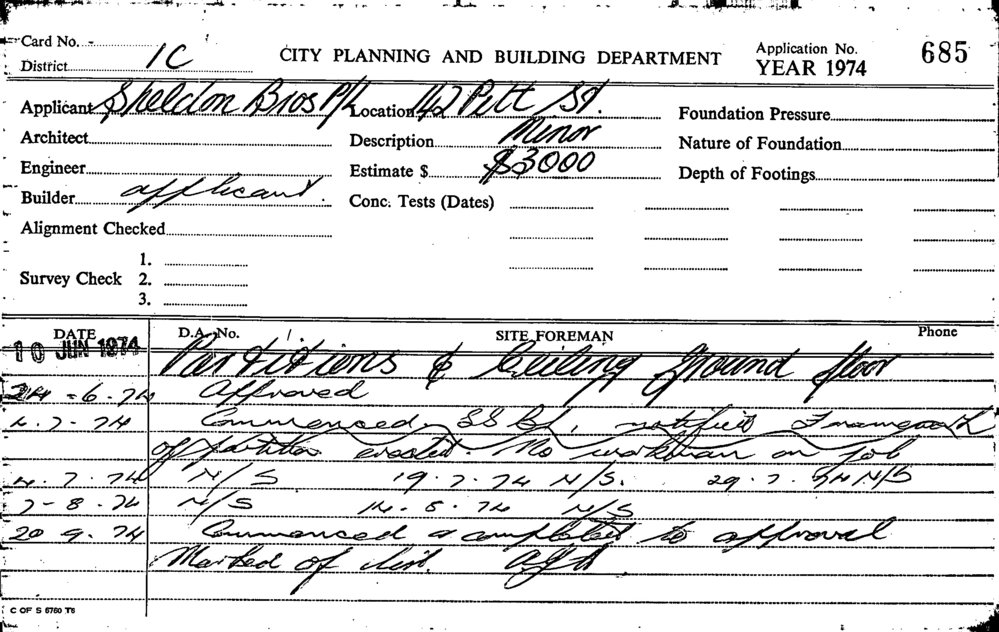 Card No.
District 1C
CITY PLANNING AND BUILDING DEPARTMENT
Application No. 685
YEAR 1974
Applicant Sheldon Bros P/L Location 142 Pitt St. Foundation Pressure
Architect Description Minor Nature of Foundation
Engineer Estimate $ $3000 Depth of Footings
Builder applicant. Conc. Tests (Dates)
Alignment Checked
1.
Survey Check 2.
3.
DATE D.A. No. / SITE FOREMAN Phone
10 JUN 1974 Partitions & Ceiling ground floor
24-6.74 Approved
4.7-74 Commenced. notified Framework
of partition erected. No workman on job
4.7.74 N/S 19.7.74 N/S. 29.7.74 N/S
7-8.74 N/S 14.8.74 N/S
20 9.74 Commenced & completed to approval
Marked of list.
C OF S 5760 T6